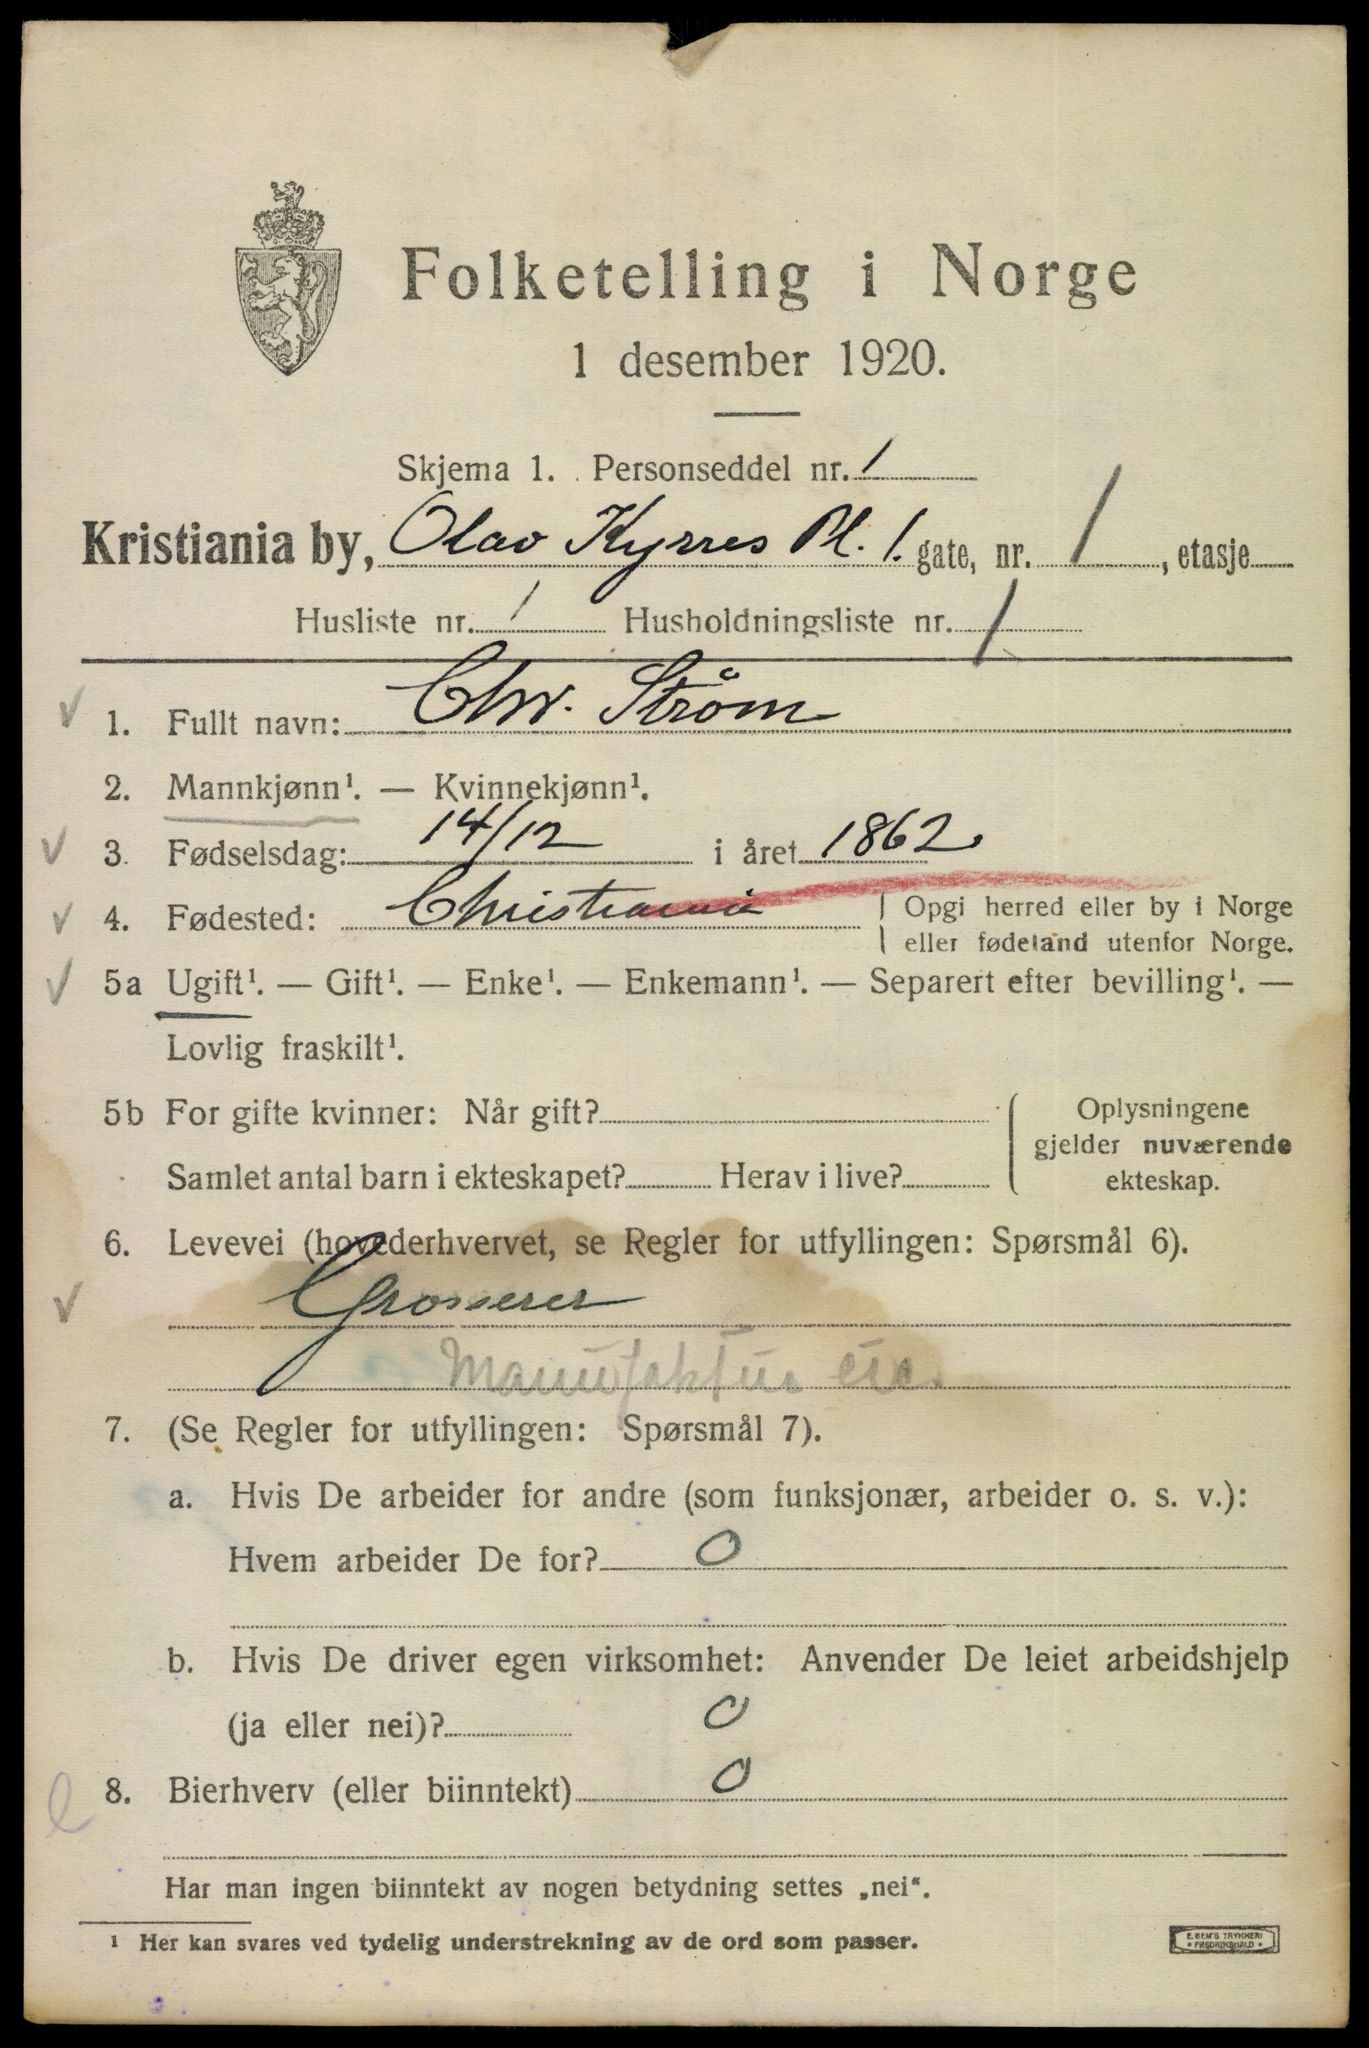 Folketelling i Norge
1 desember 1920.
Skjema 1. Personseddel nr. 1
Kristiania by, Olav Kyrres Pl. 1. gate, nr. 1, etasje
Husliste nr. 1 Husholdningsliste nr. 1
1. Fullt navn: Chr. Strøm
2. Mannkjønn¹. — Kvinnekjønn¹.
3. Fødselsdag: 14/12 i året 1862.
4. Fødested: Christiania Opgi herred eller by i Norge
eller fødeland utenfor Norge.
5a Ugift¹. — Gift¹. — Enke¹. — Enkemann¹. — Separert efter bevilling¹. —
Lovlig fraskilt¹.
5b For gifte kvinner: Når gift? Oplysningene
gjelder nuværende
Samlet antal barn i ekteskapet? Herav i live? ekteskap.
6. Levevei (hovederhvervet, se Regler for utfyllingen: Spørsmål 6).
Grosserer
Manufaktur
7. (Se Regler for utfyllingen: Spørsmål 7).
a. Hvis De arbeider for andre (som funksjonær, arbeider o. s. v.):
Hvem arbeider De for? O
b. Hvis De driver egen virksomhet: Anvender De leiet arbeidshjelp
(ja eller nei)? O
8. Bierhverv (eller biinntekt) O
Har man ingen biinntekt av nogen betydning settes „nei“.
¹ Her kan svares ved tydelig understrekning av de ord som passer.
E. SEM'S TRYKKERI
• FREDRIKSHALD •